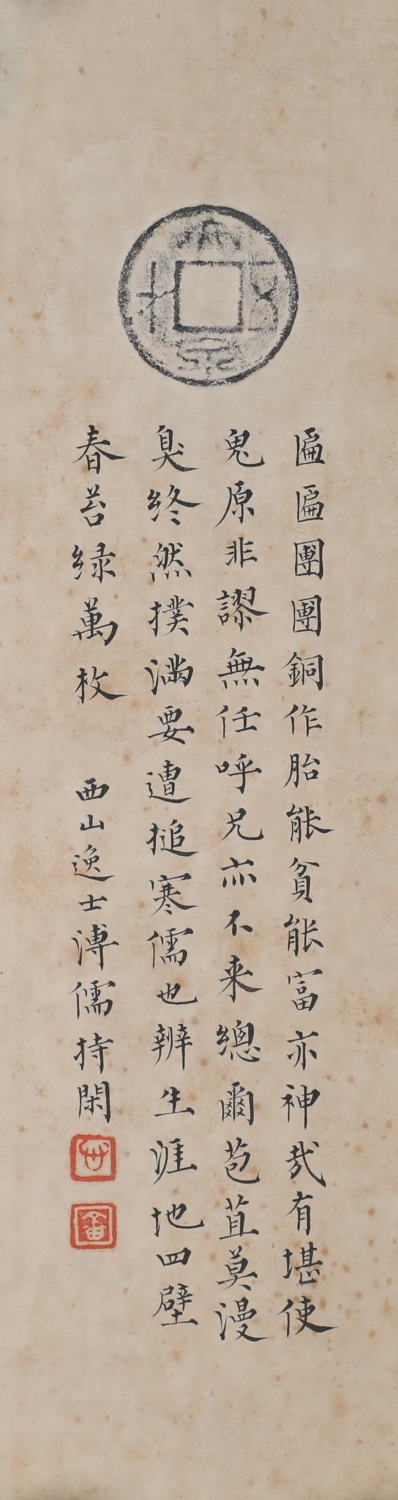 大泉五十
匾匾團團銅作胎能貧能富亦神哉有堪使
鬼原非謬無任呼兄亦不来總爾苞苴莫漫
臭終然撲滿要遭搥寒儒也辦生涯地四壁
春苔緑萬枚
西山逸士溥儒持閑